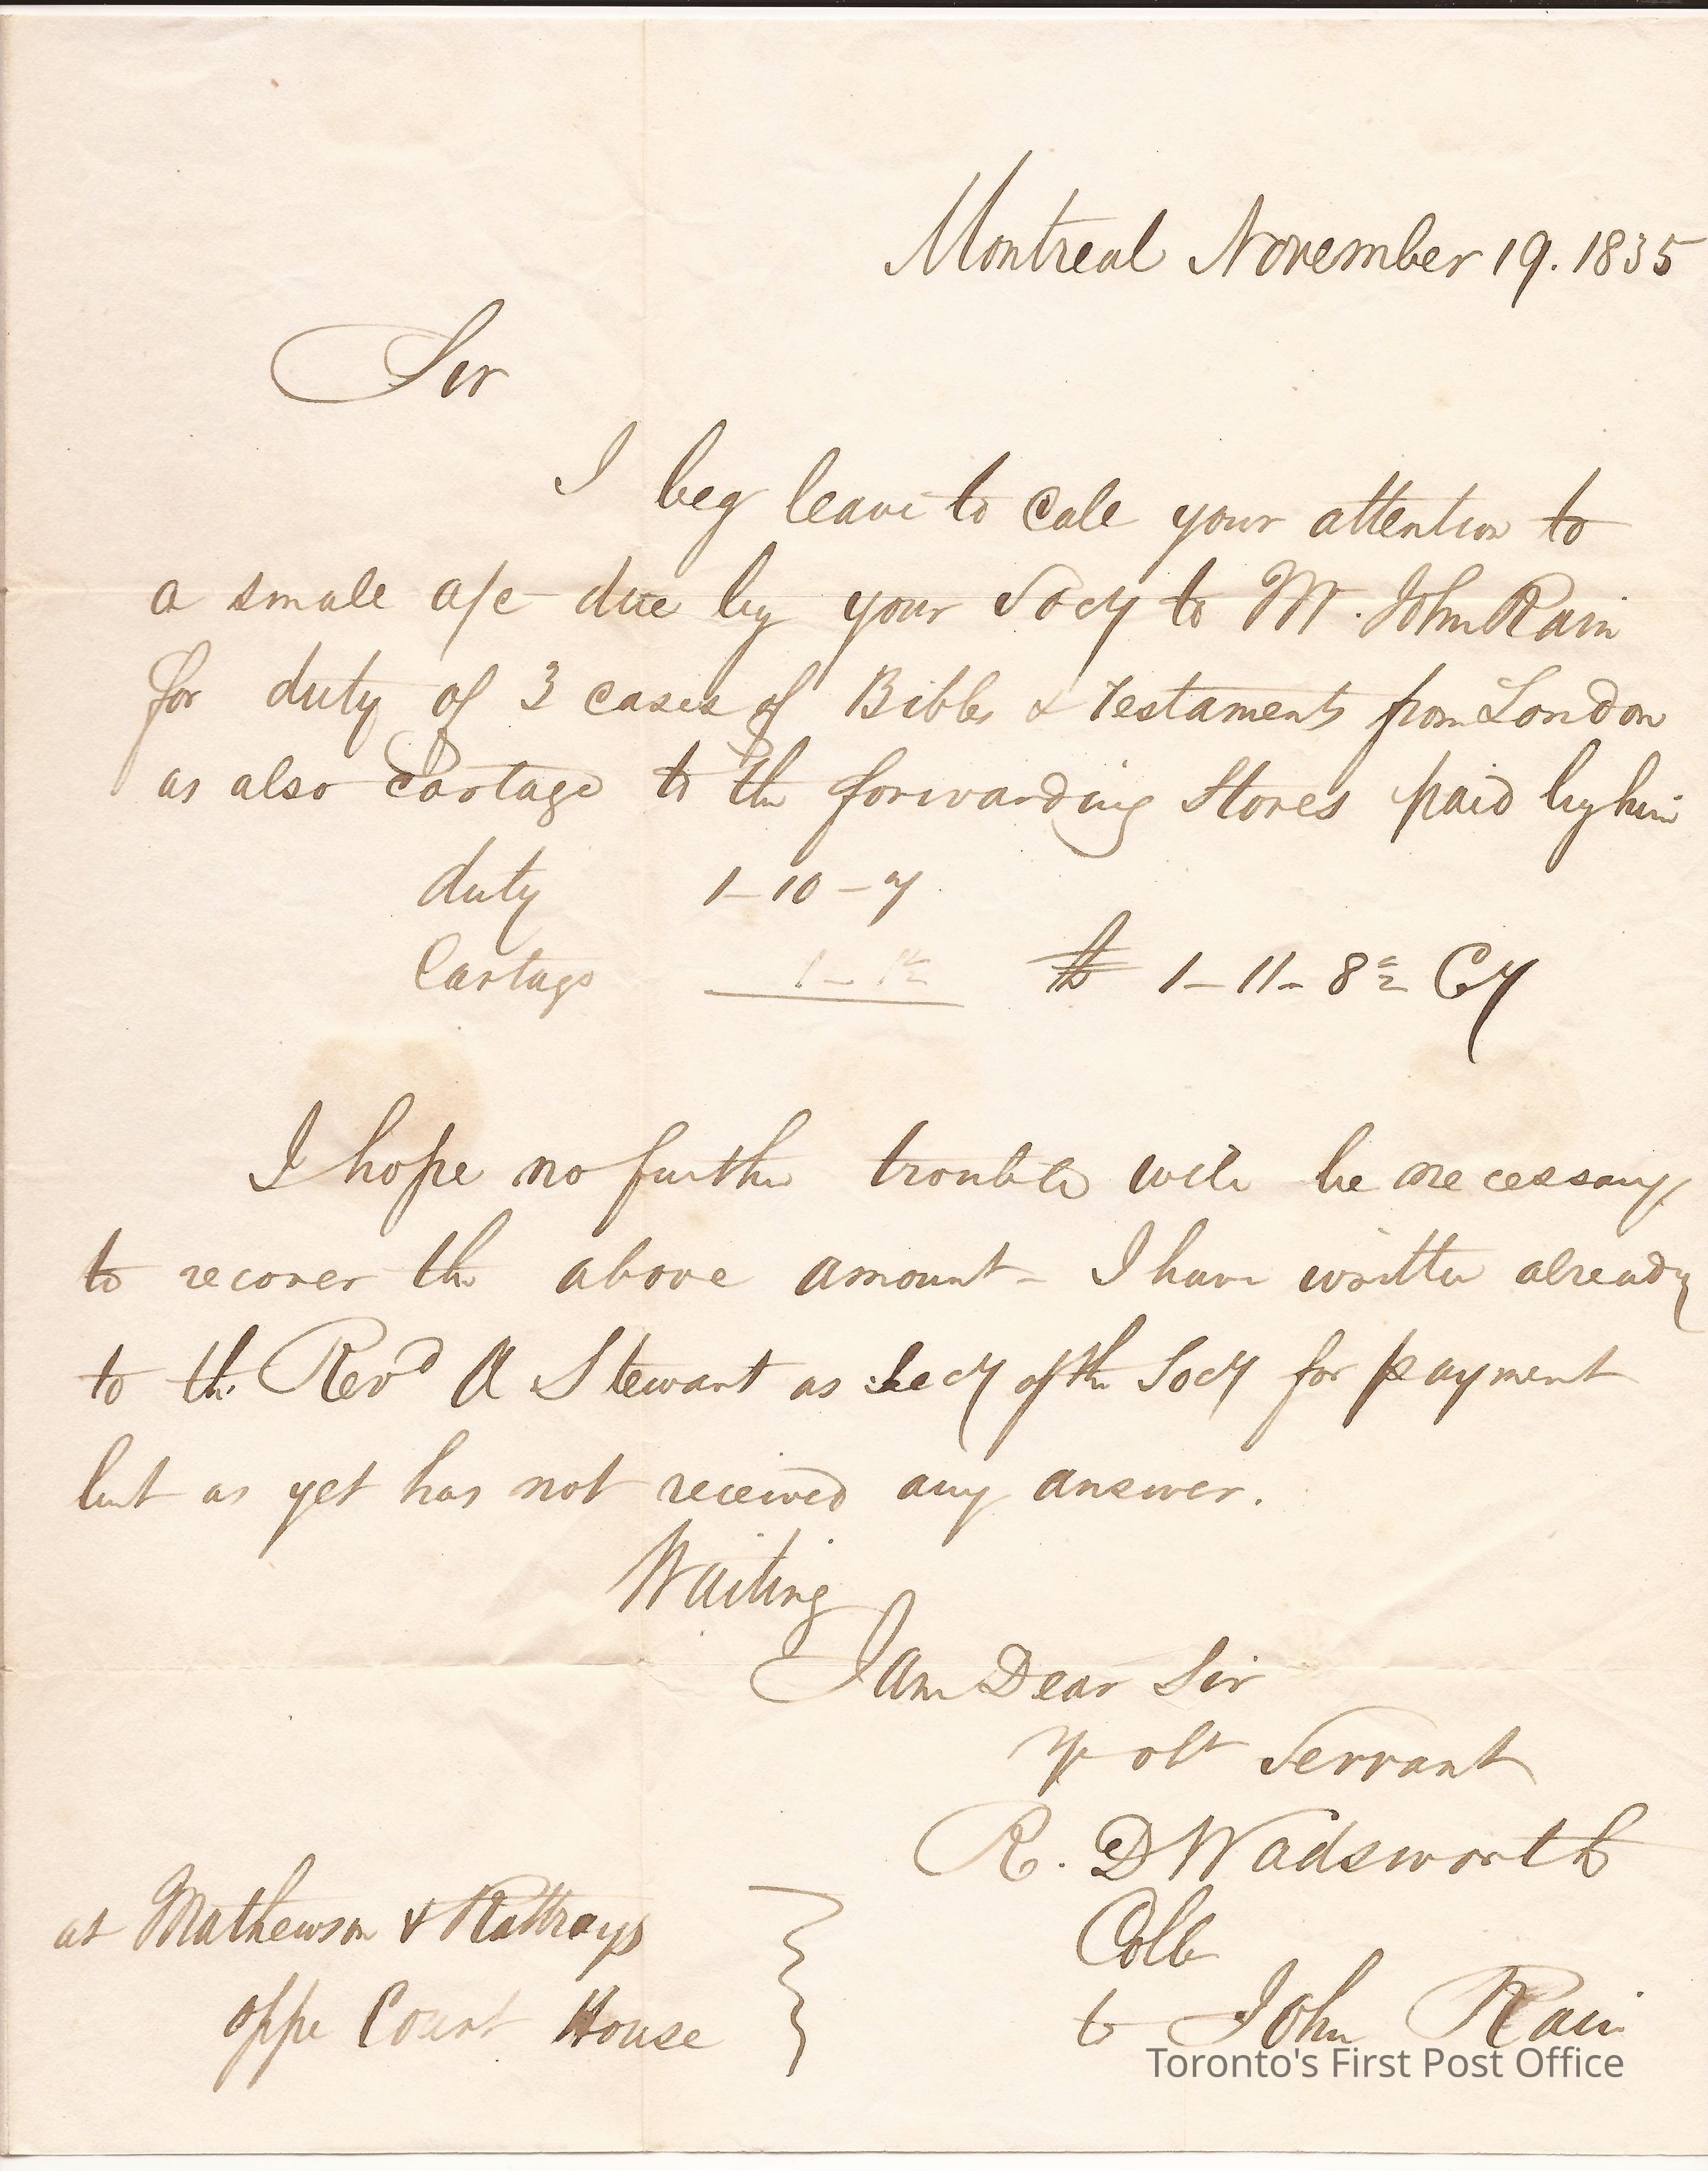 Montreal November 19. 1835
Sir
I beg leave to call your attention to
a small a/c due by your Socy to Mr. John Rain
for duty of 3 cases of Bibles & Testaments from London
as also Cartage to the forwarding Stores paid by him
duty 1-10-7
Cartage 1-1½ £ 1-11-8½ Cy
I hope no further trouble will be necessary
to recover the above amount - I have written already
to the Revd A Stewart as Secy of the Socy for payment
but as yet has not received any answer.
Waiting
I am Dear Sir
Yr obt Servant
R. D Wadsworth
Collr
to John Rain
at Mathewson & Rattrays
oppe Court House
Toronto's First Post Office